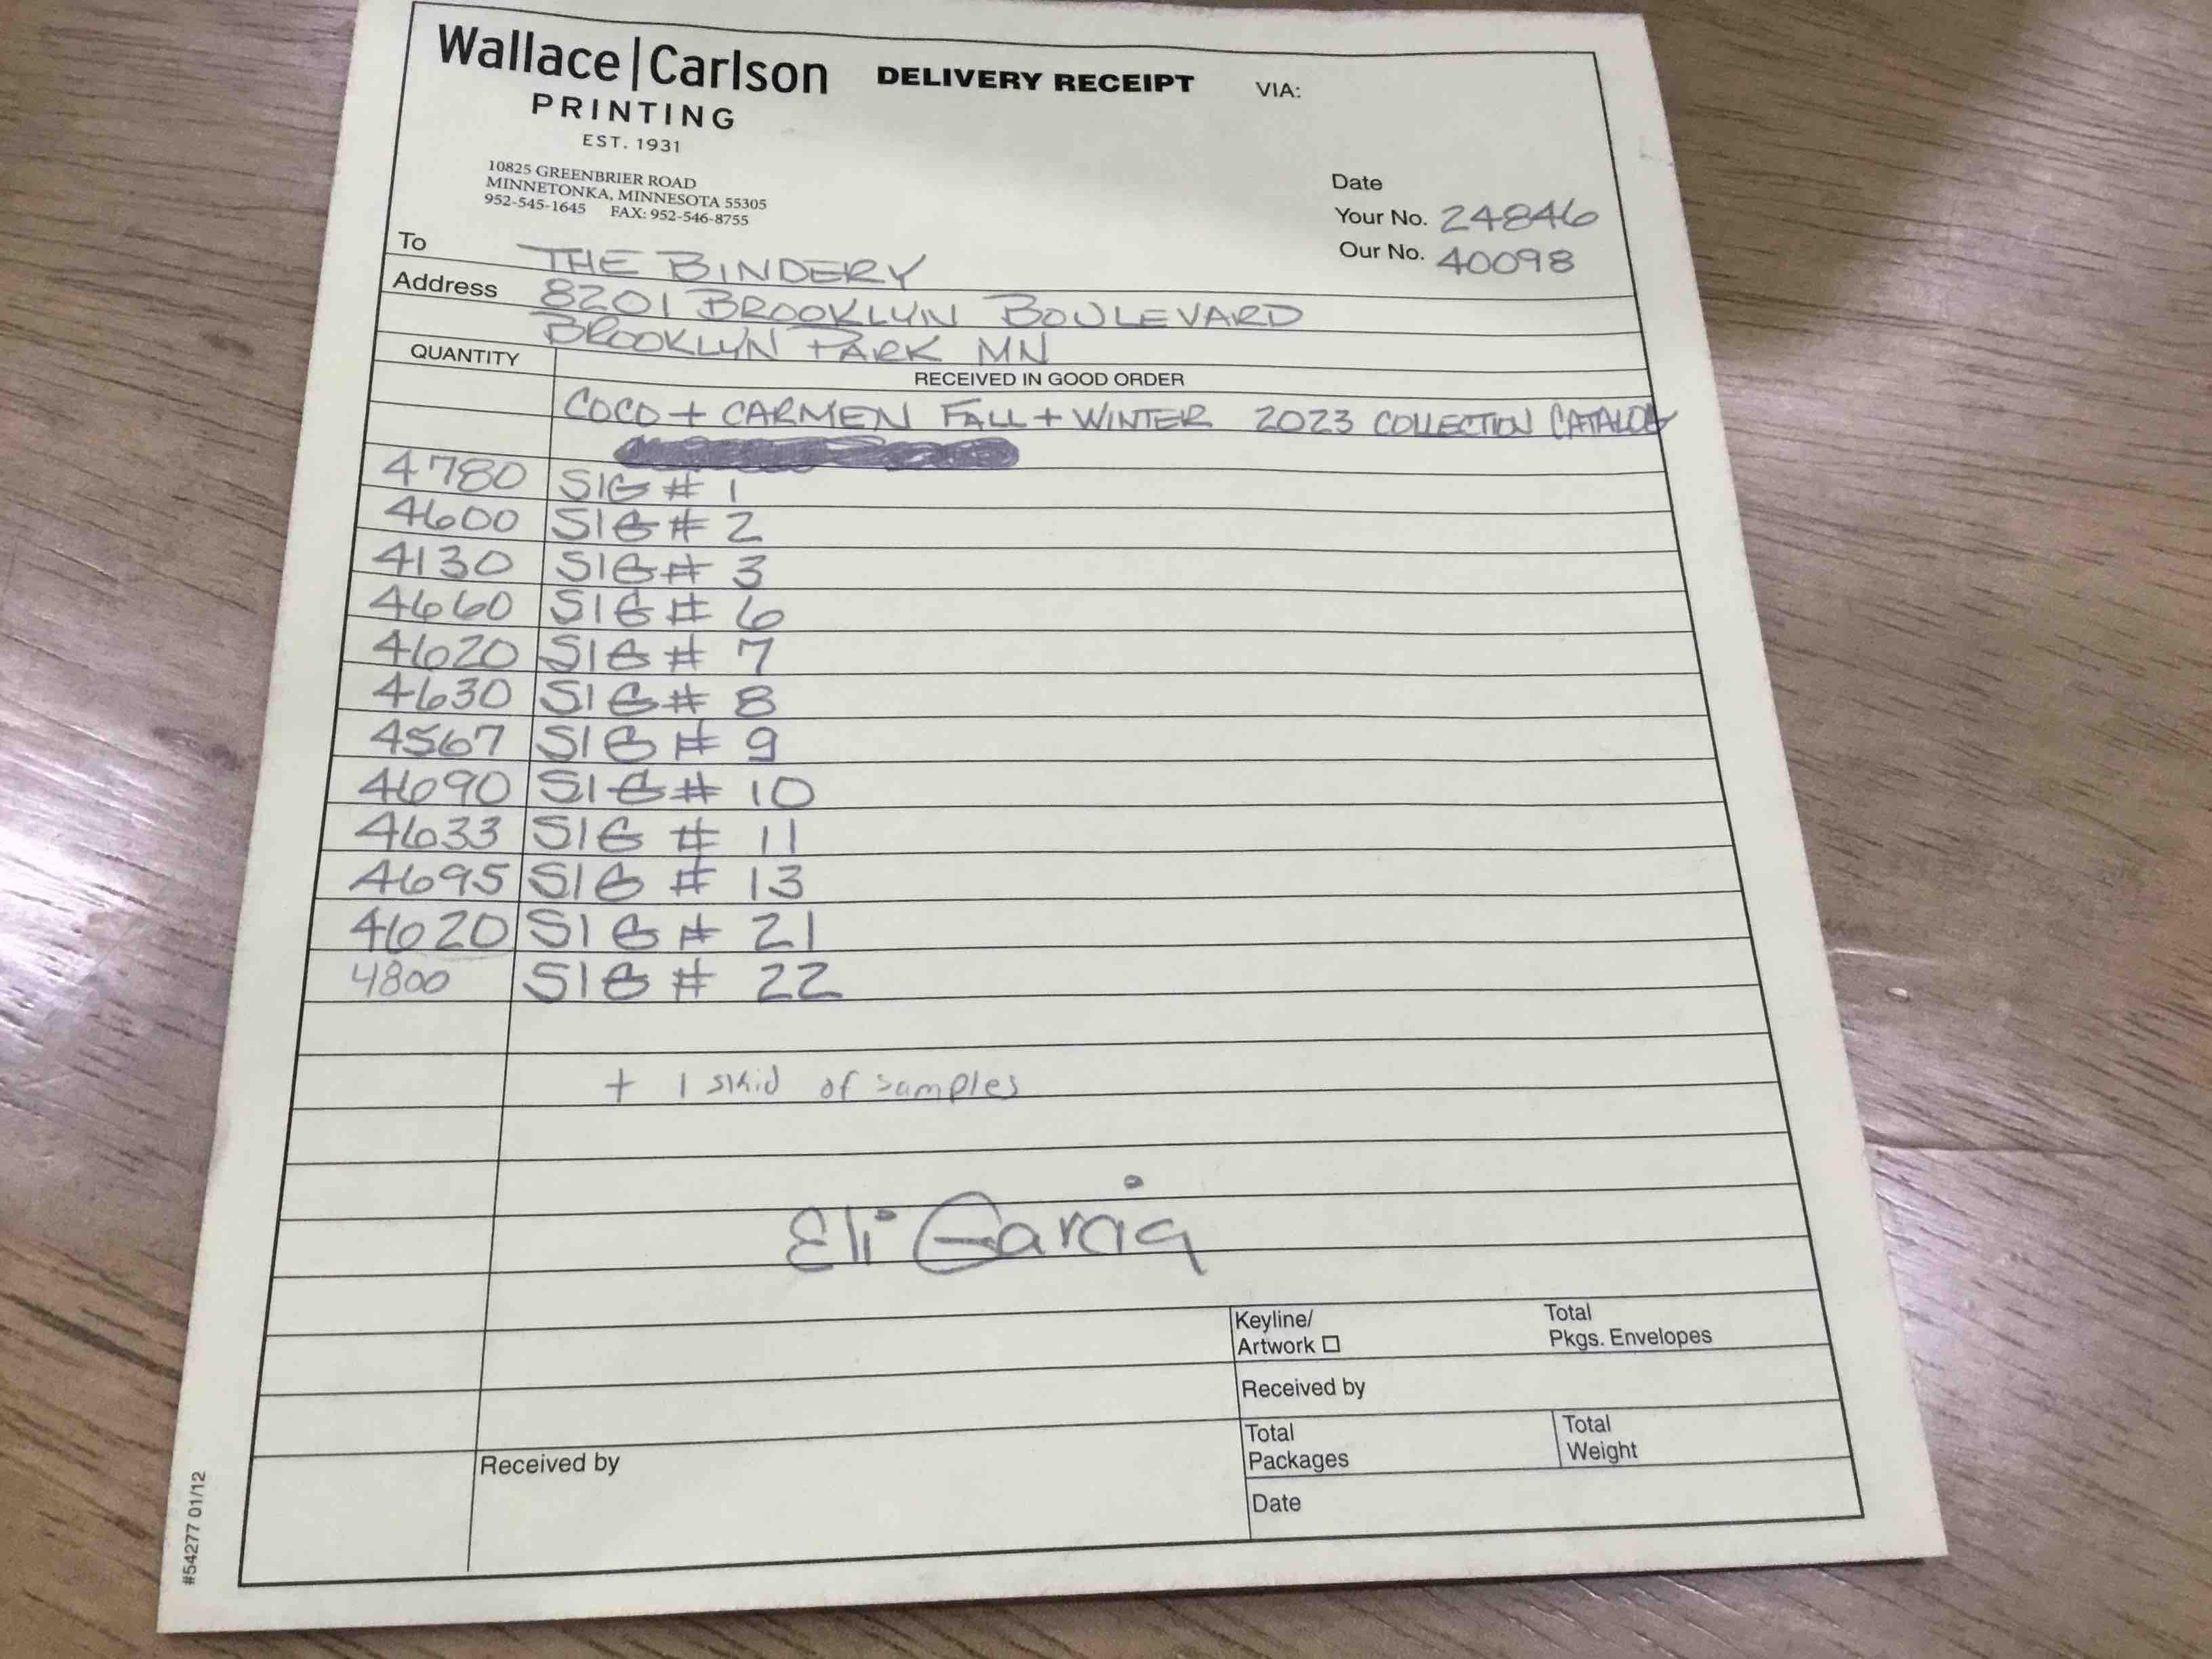 Wallace|Carlson DELIVERY RECEIPT VIA:
PRINTING
EST. 1931
10825 GREENBRIER ROAD
MINNETONKA, MINNESOTA 55305
952-545-1645 FAX: 952-546-8755
Date
Your No. 24846
Our No. 40098
To THE BINDERY
Address 8201 BROOKLYN BOULEVARD
BROOKLYN PARK MN
QUANTITY RECEIVED IN GOOD ORDER
COCO + CARMEN FALL + WINTER 2023 COLLECTION CATALOG
4780 SIG # 1
4600 SIG # 2
4130 SIG # 3
4660 SIG # 6
4620 SIG # 7
4630 SIG # 8
4567 SIG # 9
4690 SIG # 10
4633 SIG # 11
4695 SIG # 13
4620 SIG # 21
4800 SIG # 22
+ 1 skid of samples
Eli Garcia
Keyline/ Total
Artwork ☐ Pkgs. Envelopes
Received by
Total Total
Packages Weight
Received by
Date
#54277 01/12